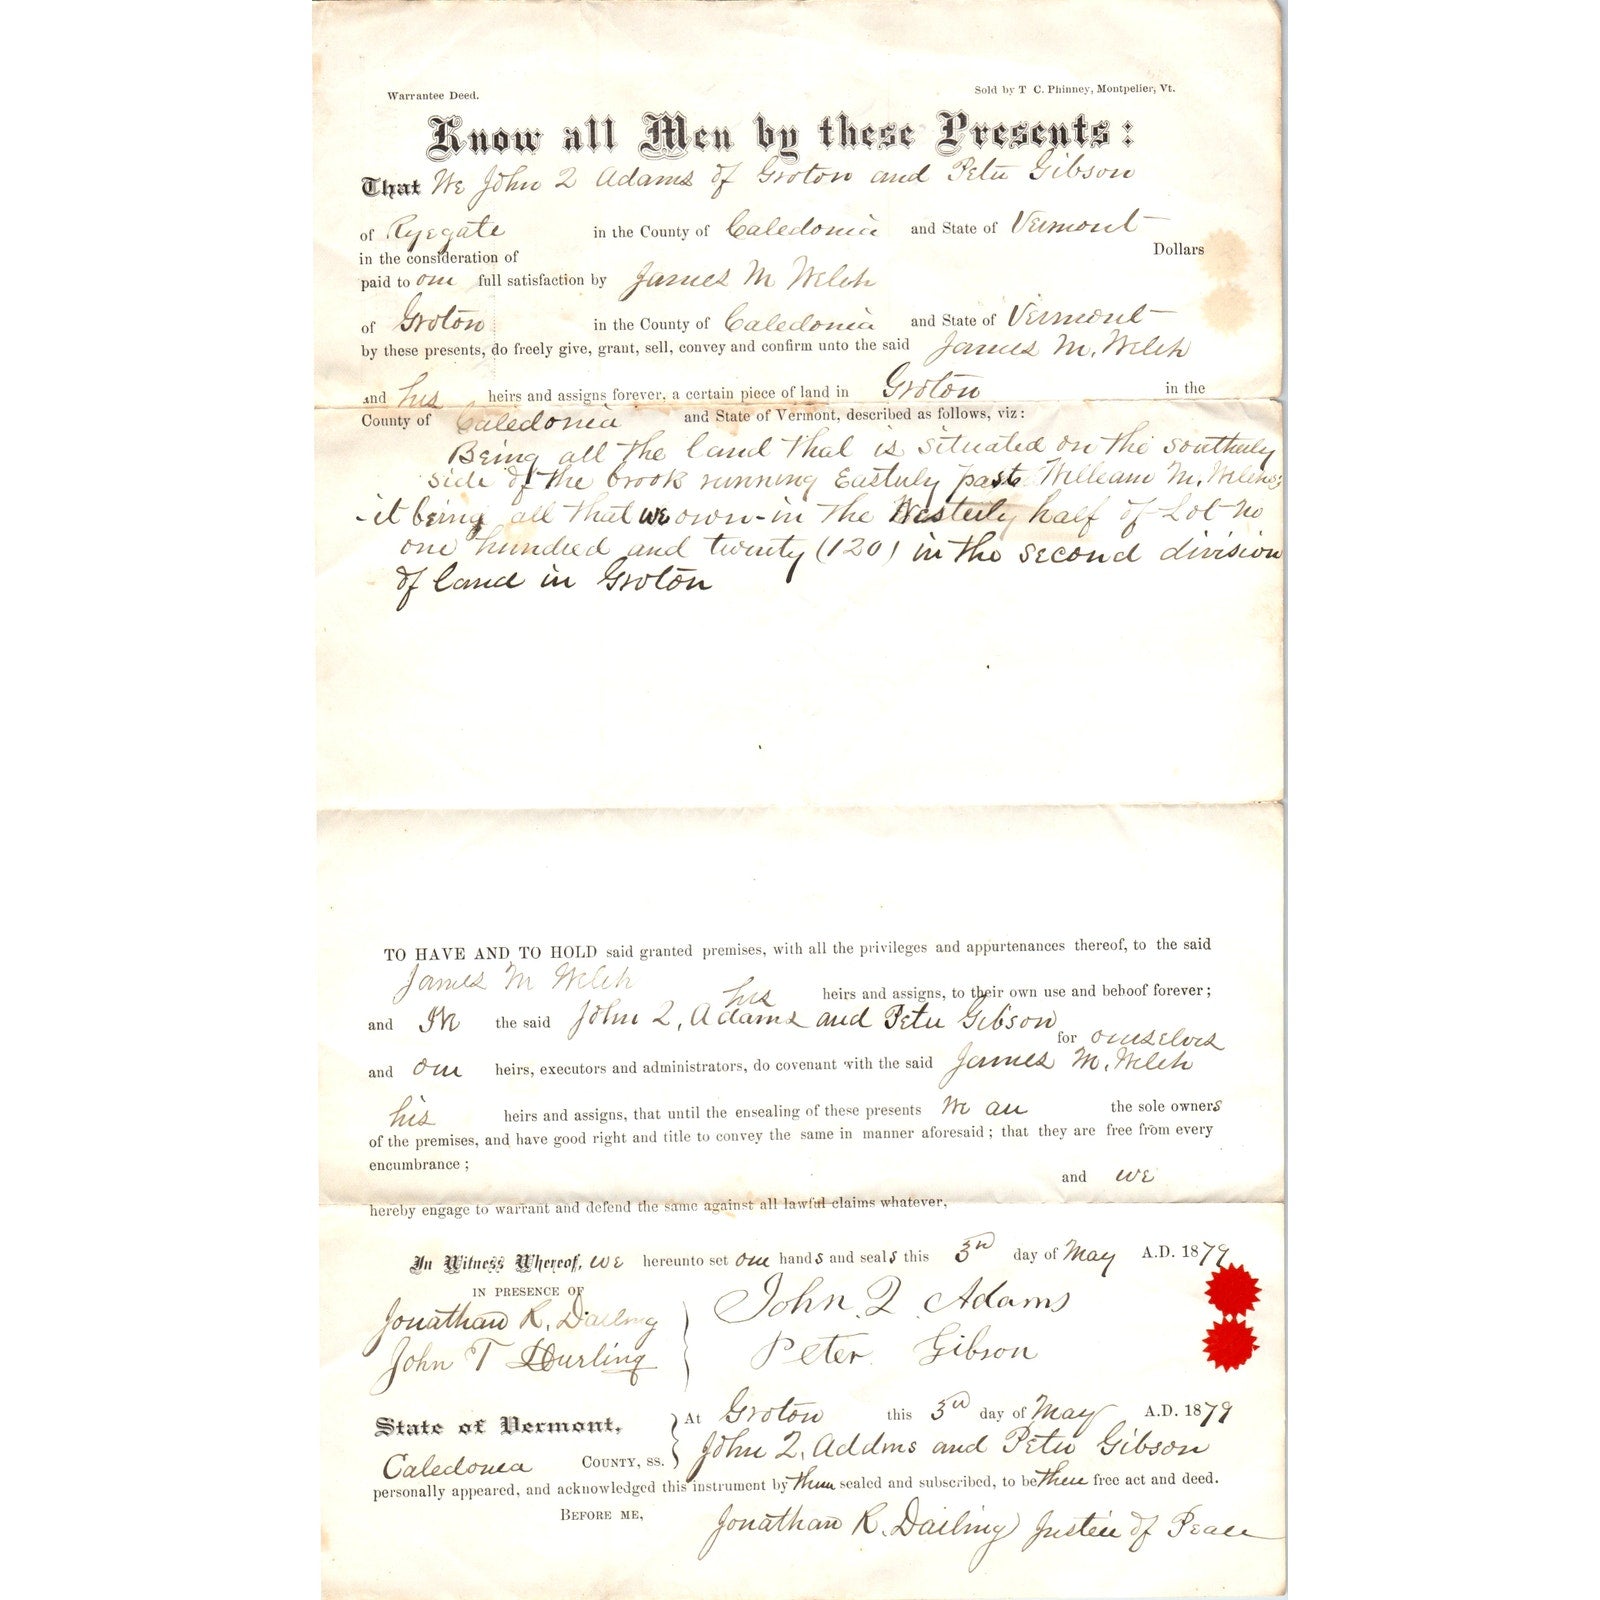 Warrantee Deed. Sold by T. C. Phinney, Montpelier, Vt.
Know all Men by these Presents:
That We John Q Adams of Groton and Peter Gibson
of Ryegate in the County of Caledonia and State of Vermont
in the consideration of Dollars
paid to our full satisfaction by James M Welch
of Groton in the County of Caledonia and State of Vermont
by these presents, do freely give, grant, sell, convey and confirm unto the said James M. Welch
and his heirs and assigns forever, a certain piece of land in Groton in the
County of Caledonia and State of Vermont, described as follows, viz:
Being all the land that is situated on the southerly
side of the brook running Easterly past William M.
- it being all that we own in the Westerly half of Lot No
one hundred and twenty (120) in the second division
of land in Groton
TO HAVE AND TO HOLD said granted premises, with all the privileges and appurtenances thereof, to the said
James M Welch
his heirs and assigns, to their own use and behoof forever;
and We the said John Q. Adams and Peter Gibson
for ourselves
and our heirs, executors and administrators, do covenant with the said James M. Welch
his heirs and assigns, that until the ensealing of these presents We are the sole owners
of the premises, and have good right and title to convey the same in manner aforesaid; that they are free from every
encumbrance;
and we
hereby engage to warrant and defend the same against all lawful claims whatever,
In Witness Whereof, we hereunto set our hands and seals this 3rd day of May A.D. 1879
IN PRESENCE OF
Jonathan R. Darling John Q Adams
John T Durling Peter Gibson
State of Vermont, At Groton this 3rd day of May A.D. 1879
Caledonia COUNTY, SS. John Q. Addms and Peter Gibson
personally appeared, and acknowledged this instrument by them sealed and subscribed, to be their free act and deed.
BEFORE ME, Jonathan R. Darling Justice of Peace